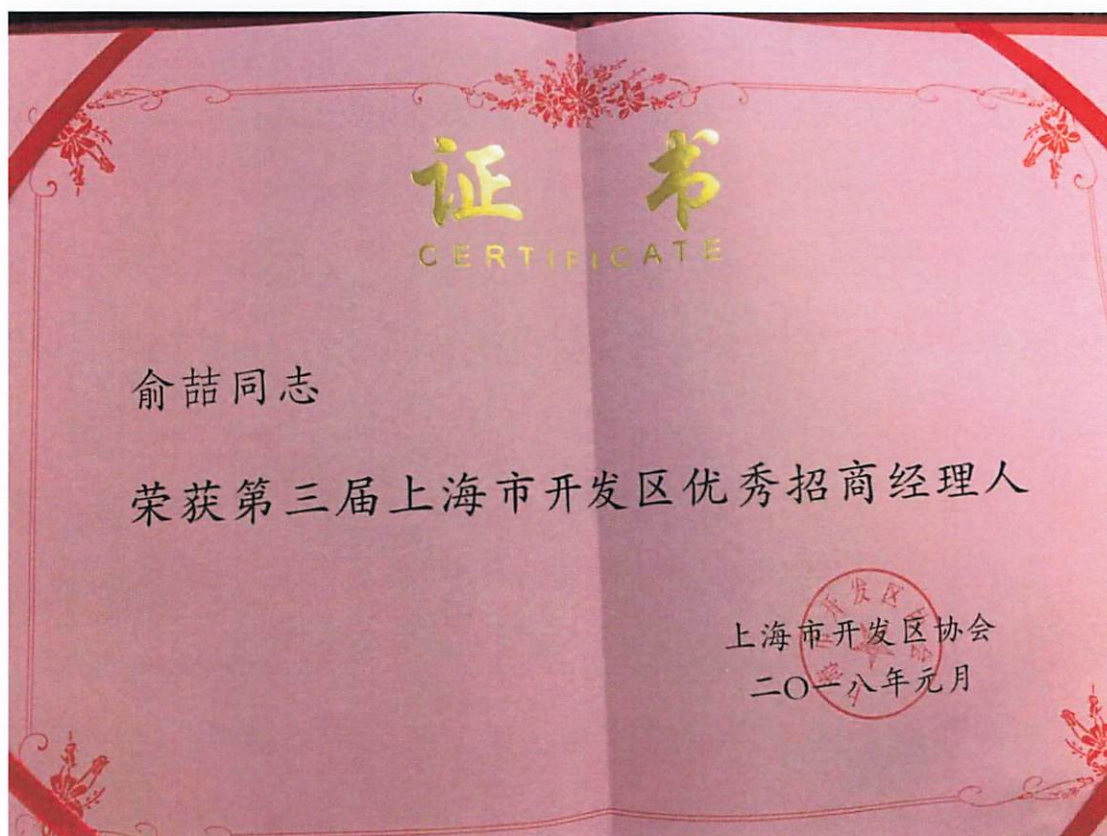 证书
CERTIFICATE
俞喆同志
荣获第三届上海市开发区优秀招商经理人
上海市开发区协会
二〇一八年元月